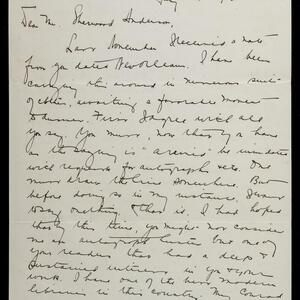 Dear Mr. Sherwood Anderson,
Last November I received a note
from you dated New Orleans. I have been
carrying this around in numerous suits
of clothes, awaiting a favorable moment
to answer. First I agree with all
you say. You must, now that you have
as the saying is "arrived" be inundated
with requests for autographs etc. One
must draw the line somewhere. But
before doing so in my instance, I want
to say one thing & that is, I had hoped
that by this time, you might not consider
me an autograph hunter but one of
your readers that had a deep &
sustained interest in you & your
work. I have one of the best modern
libraries in this country. My Conrad